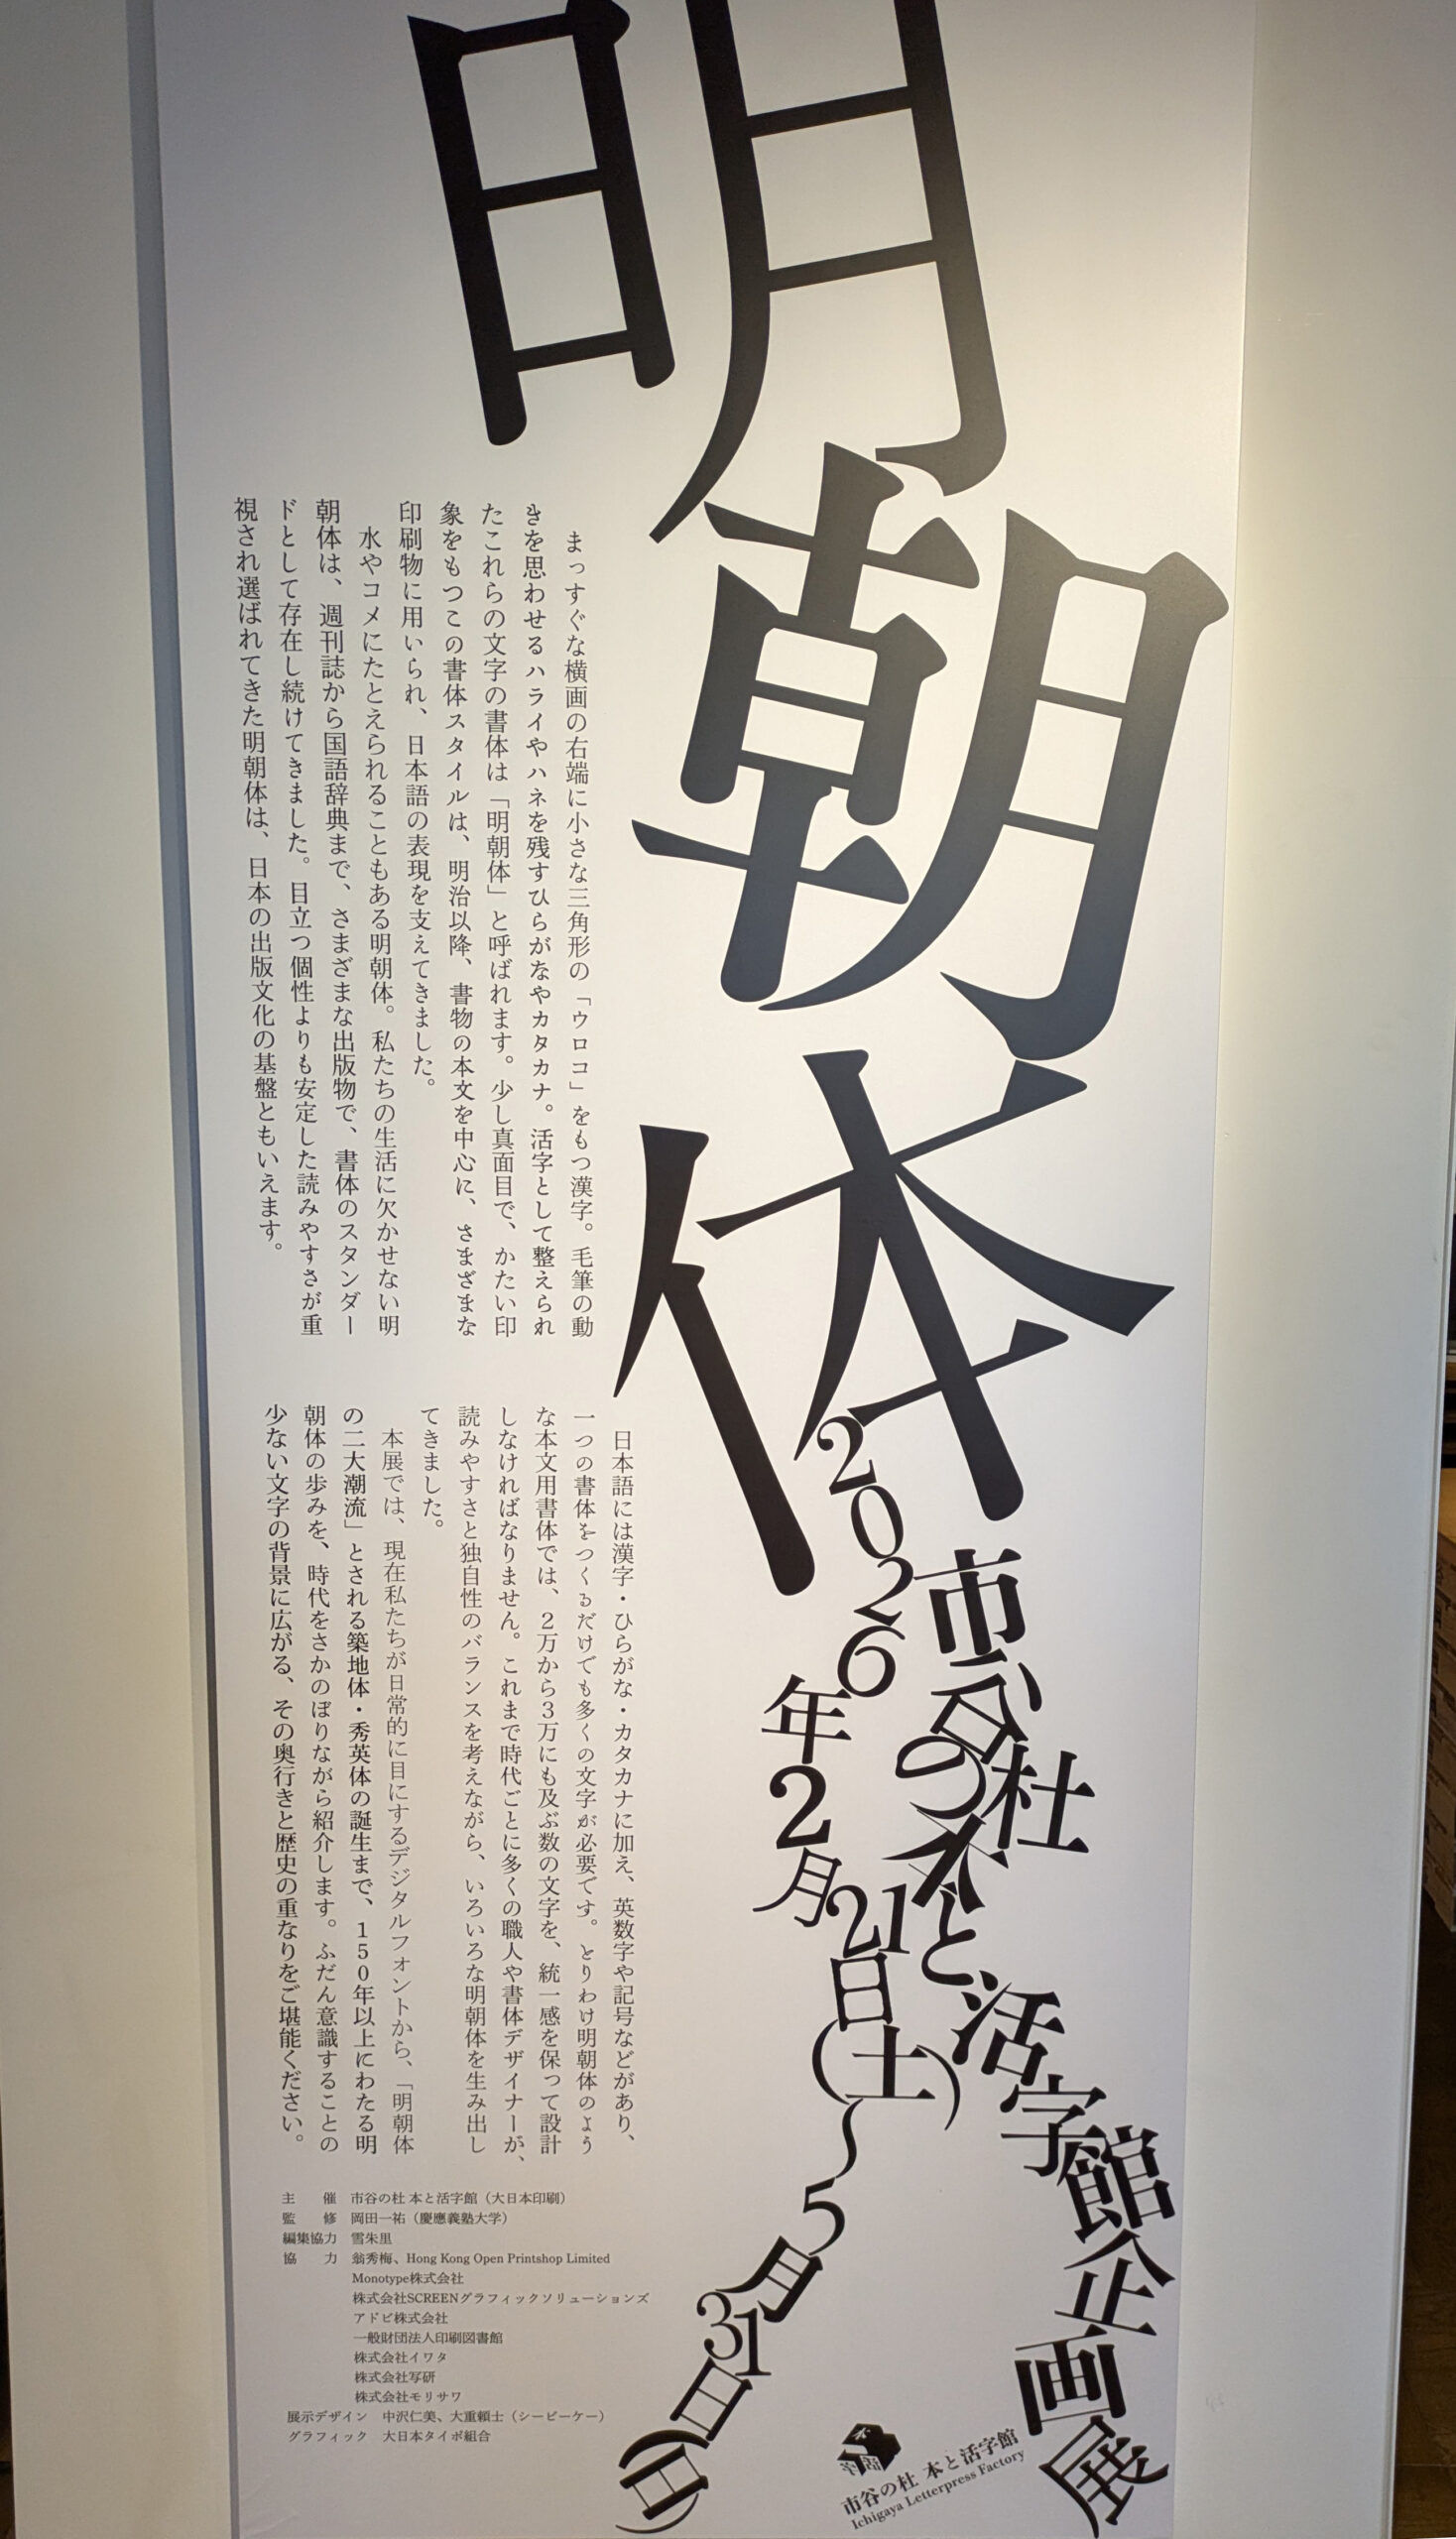 明朝体
市谷の杜 本と活字館企画展
2026年2月21日(土)〜5月31日(日)
まっすぐな横画の右端に小さな三角形の「ウロコ」をもつ漢字。毛筆の動
きを思わせるハライやハネを残すひらがなやカタカナ。活字として整えられ
たこれらの文字の書体は「明朝体」と呼ばれます。少し真面目で、かたい印
象をもつこの書体スタイルは、明治以降、書物の本文を中心に、さまざまな
印刷物に用いられ、日本語の表現を支えてきました。
水やコメにたとえられることもある明朝体。私たちの生活に欠かせない明
朝体は、週刊誌から国語辞典まで、さまざまな出版物で、書体のスタンダー
ドとして存在し続けてきました。目立つ個性よりも安定した読みやすさが重
視され選ばれてきた明朝体は、日本の出版文化の基盤ともいえます。
日本語には漢字・ひらがな・カタカナに加え、英数字や記号などがあり、
一つの書体をつくるだけでも多くの文字が必要です。とりわけ明朝体のよう
な本文用書体では、2万から3万にも及ぶ数の文字を、統一感を保って設計
しなければなりません。これまで時代ごとに多くの職人や書体デザイナーが、
読みやすさと独自性のバランスを考えながら、いろいろな明朝体を生み出し
てきました。
本展では、現在私たちが日常的に目にするデジタルフォントから、「明朝体
の二大潮流」とされる築地体・秀英体の誕生まで、150年以上にわたる明
朝体の歩みを、時代をさかのぼりながら紹介します。ふだん意識することの
少ない文字の背景に広がる、その奥行きと歴史の重なりをご堪能ください。
主 催 市谷の杜 本と活字館（大日本印刷）
監 修 岡田一祐（慶應義塾大学）
編集協力 雪朱里
協 力 翁秀梅、Hong Kong Open Printshop Limited
Monotype株式会社
株式会社SCREENグラフィックソリューションズ
アドビ株式会社
一般財団法人印刷図書館
株式会社イワタ
株式会社写研
株式会社モリサワ
展示デザイン 中沢仁美、大重頼士（シービーケー）
グラフィック 大日本タイポ組合
市谷の杜 本と活字館
Ichigaya Letterpress Factory